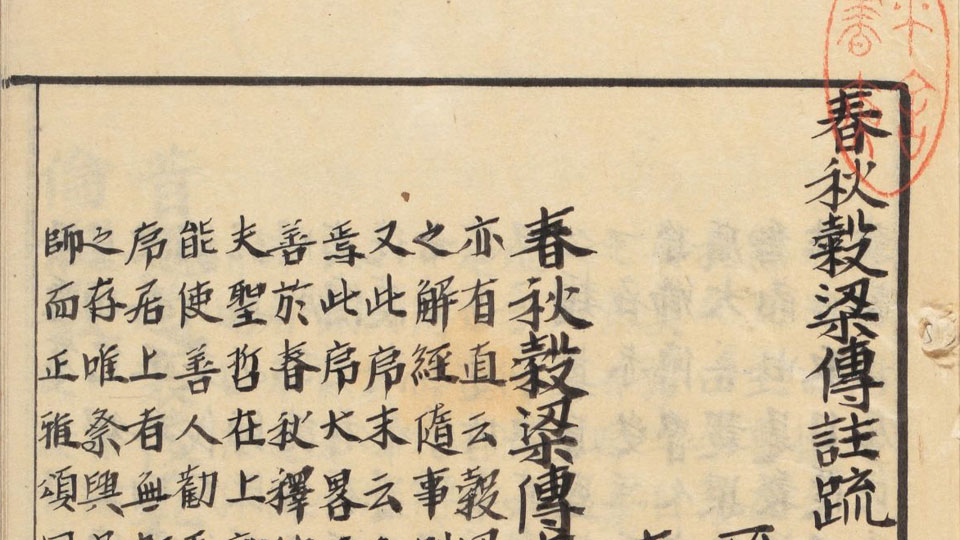 春秋穀梁傳註疏
春秋穀梁傳
亦有直云穀
之解經隨事
又此序末云
焉此序大畧
善於春秋釋
夫聖哲在上
能使善人勸
序居上者無
之存唯祭與
師而正雅頌